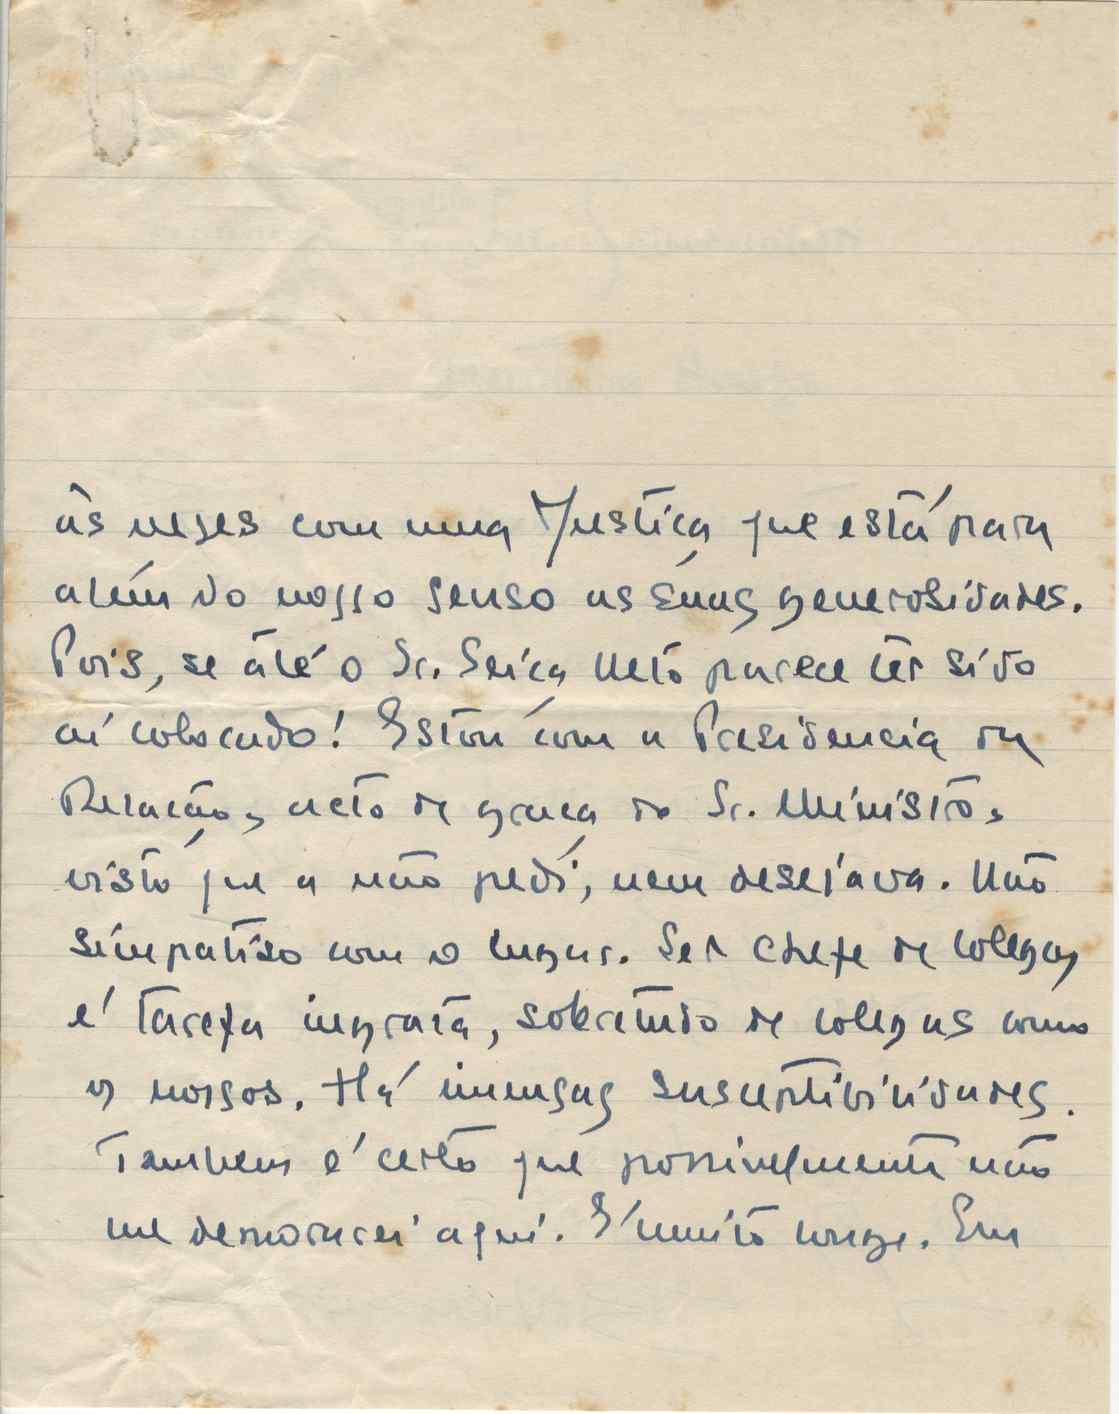 às vezes com uma Justiça que está para
além do nosso senso as suas generosidades.
Pois, se até o Sr. Seiça Neto parece ter sido
aí colocado! Estou com a Presidencia da
Relação, acto de graça do Sr. Ministro,
visto que a não pedi, nem desejava. Não
simpatiso com o lugar. Ser chefe de colegas
é tarefa ingrata, sobretudo de colegas como
os nossos. Há imensas susceptibilidades.
Tambem é certo que possivelmente não
me demorarei aqui. É muito longe. Em